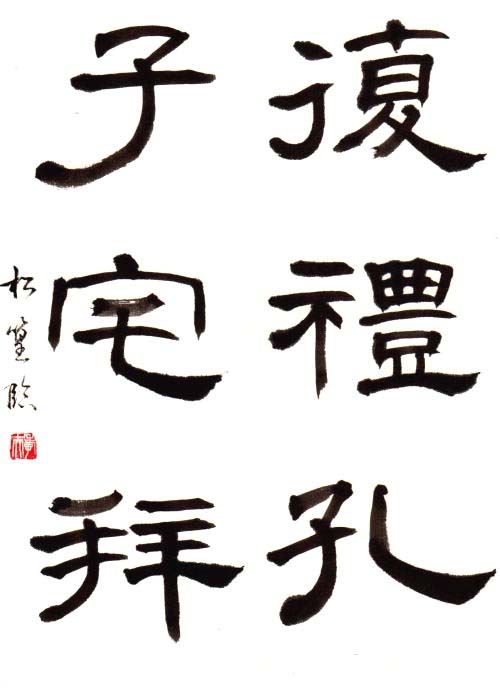 復禮孔
子宅拜
松篁臨